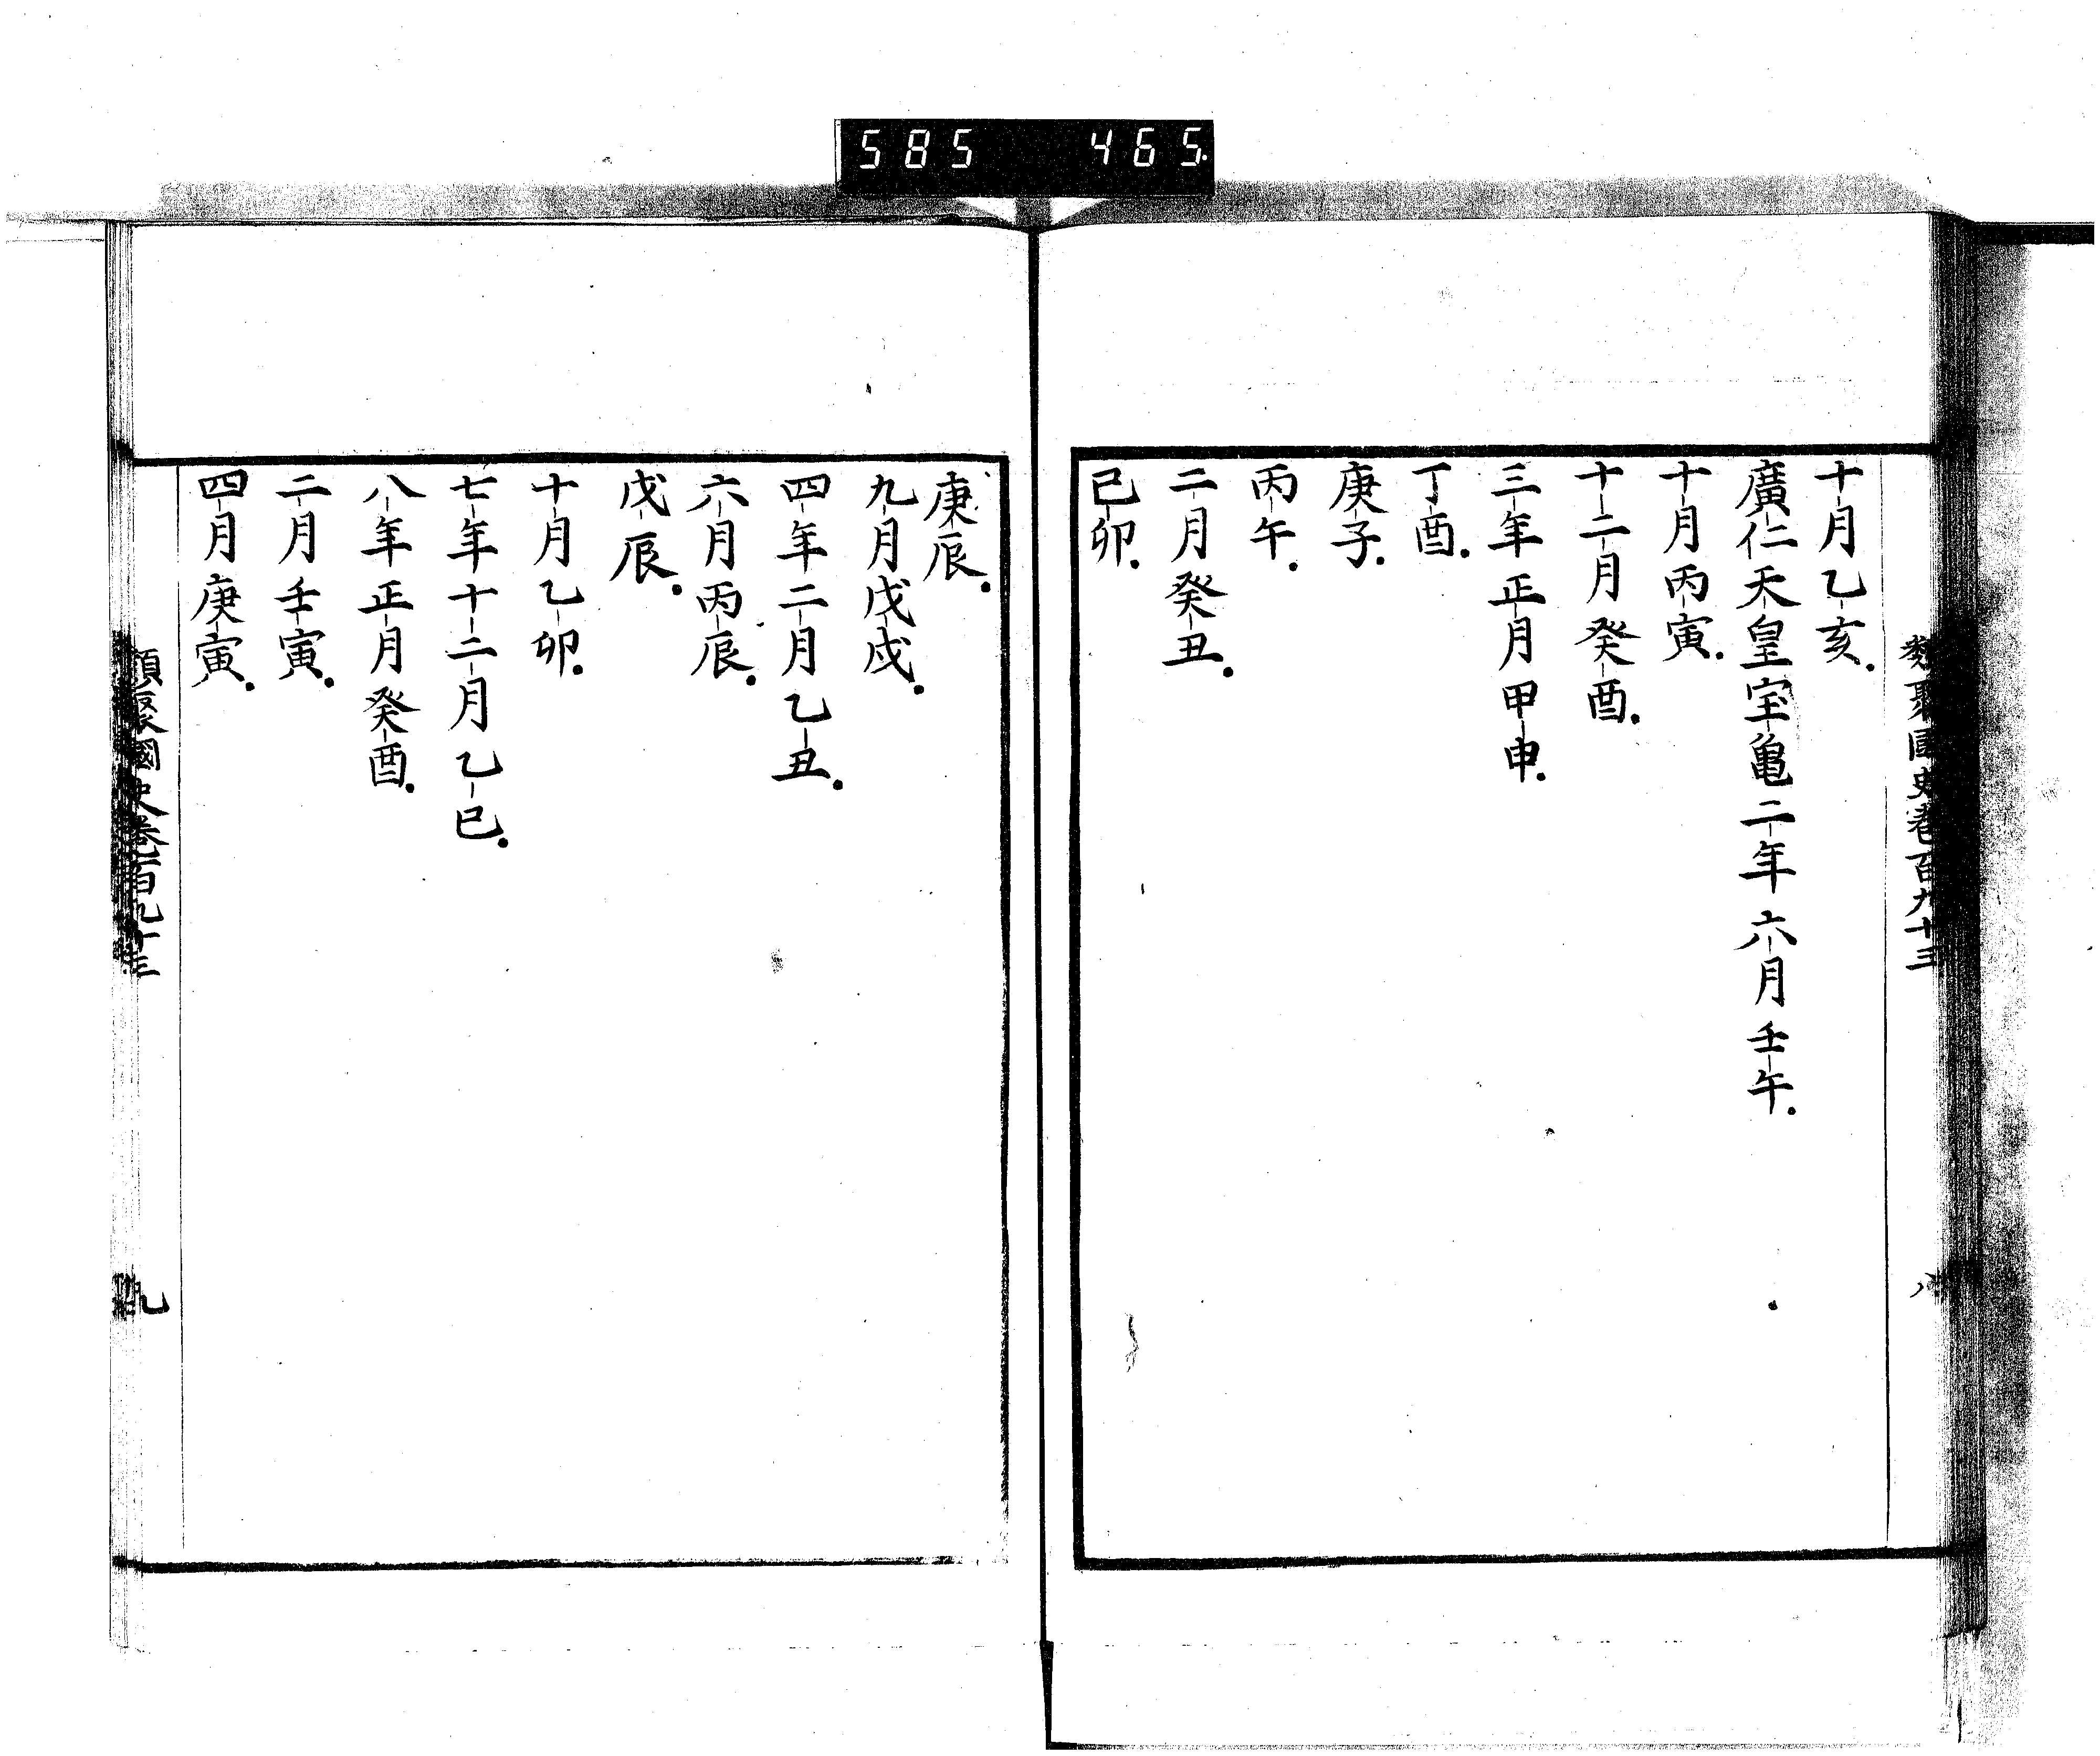 585 465
類聚國史卷百九十三
八
十月乙亥.
廣仁天皇宝亀二年六月壬午.
十月丙寅.
十二月癸酉.
三年正月甲申.
丁酉.
庚子.
丙午.
二月癸丑.
己卯.
庚辰.
九月戊戌.
四年二月乙丑.
六月丙辰.
戊辰.
十月乙卯.
七年十二月乙巳.
八年正月癸酉.
二月壬寅.
四月庚寅.
類聚國史卷百九十三
九